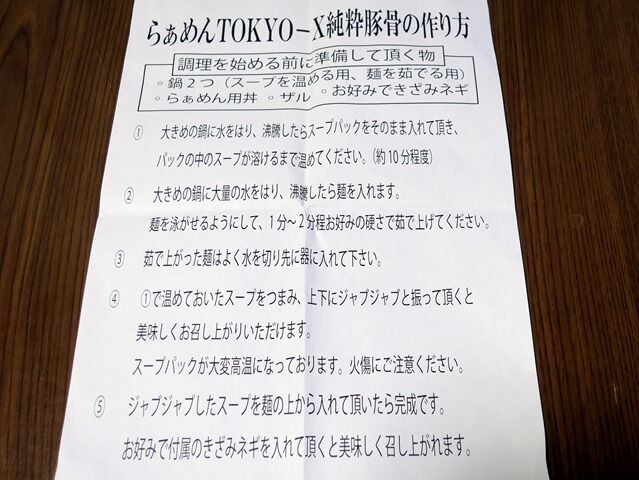 らぁめんTOKYO－X純粋豚骨の作り方
調理を始める前に準備して頂く物
◦鍋２つ（スープを温める用、麺を茹でる用）
◦らぁめん用丼 ◦ザル ◦お好みできざみネギ
① 大きめの鍋に水をはり、沸騰したらスープパックをそのまま入れて頂き、
パックの中のスープが溶けるまで温めてください。（約10分程度）
② 大きめの鍋に大量の水をはり、沸騰したら麺を入れます。
麺を泳がせるようにして、１分～２分程お好みの硬さで茹で上げてください。
③ 茹で上がった麺はよく水を切り先に器に入れて下さい。
④ ①で温めておいたスープをつまみ、上下にジャブジャブと振って頂くと
美味しくお召し上がりいただけます。
スープパックが大変高温になっております。火傷にご注意ください。
⑤ ジャブジャブしたスープを麺の上から入れて頂いたら完成です。
お好みで付属のきざみネギを入れて頂くと美味しく召し上がれます。